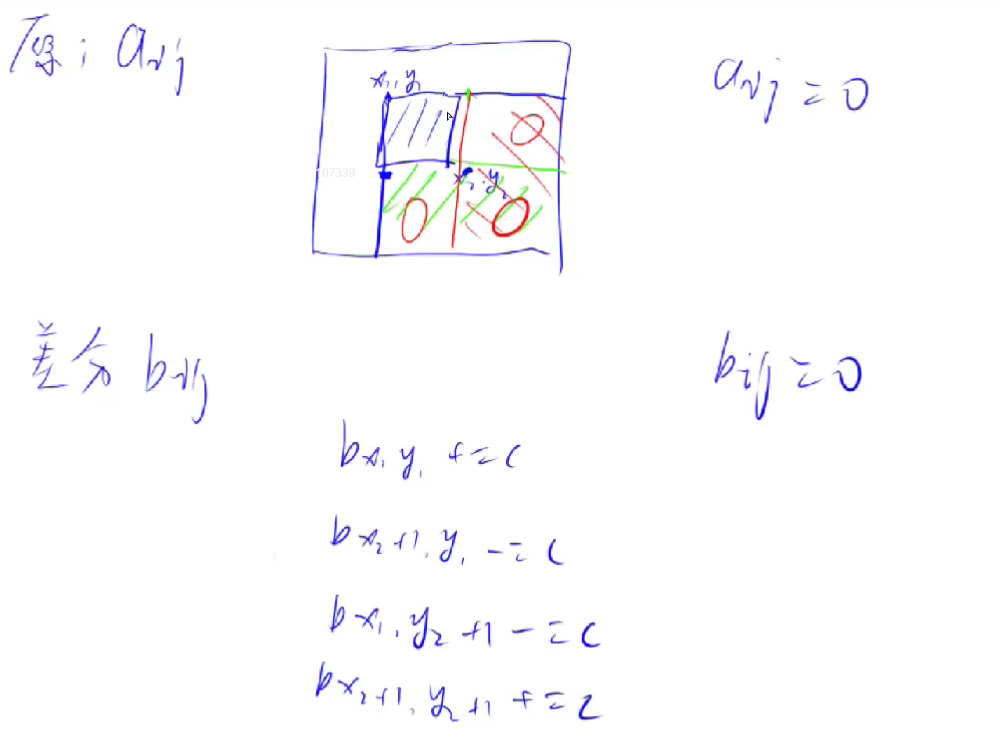 原: aij
aij = 0
x1, y1
07339
x2, y2
差分 bij
bij = 0
bx1 y1 += c
bx2+1, y1 -= c
bx1, y2+1 -= c
bx2+1, y2+1 += c